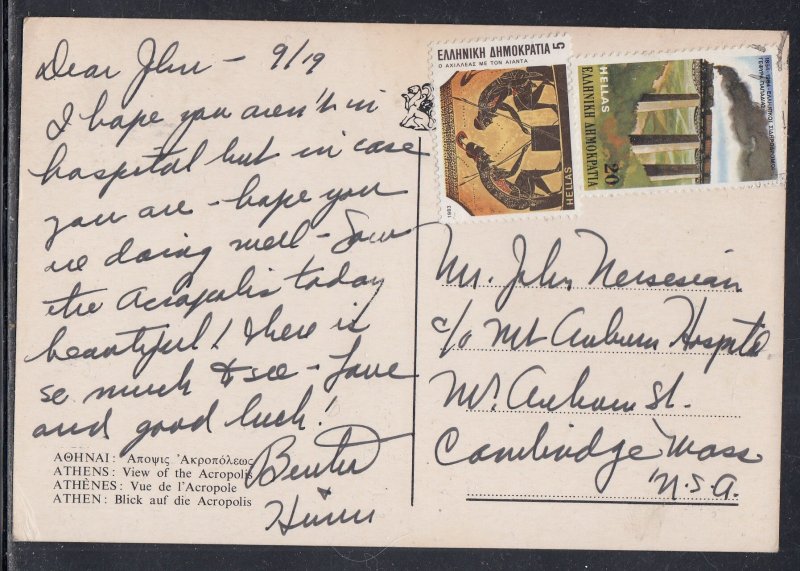 Dear John - 9/19
I hope you aren't in
hospital but in case
you are - hope you
're doing well - Saw
the Acropolis today
beautiful! there is
so much to see - Love
and good luck!
ΑΘΗΝΑΙ: Αποψις Ἀκροπόλεως
ATHENS: View of the Acropolis
ATHÈNES: Vue de l'Acropole
ATHEN: Blick auf die Acropolis
ΕΛΛΗΝΙΚΗ ΔΗΜΟΚΡΑΤΙΑ 5
Ο ΑΧΙΛΛΕΑΣ ΜΕ ΤΟΝ ΑΙΑΝΤΑ
HELLAS
1983
HELLAS
ΕΛΛΗΝΙΚΗ ΔΗΜΟΚΡΑΤΙΑ
20
Mr. John Nersesian
c/o Mt Auburn Hospital
Mt. Auburn St.
Cambridge Mass
U.S.A.